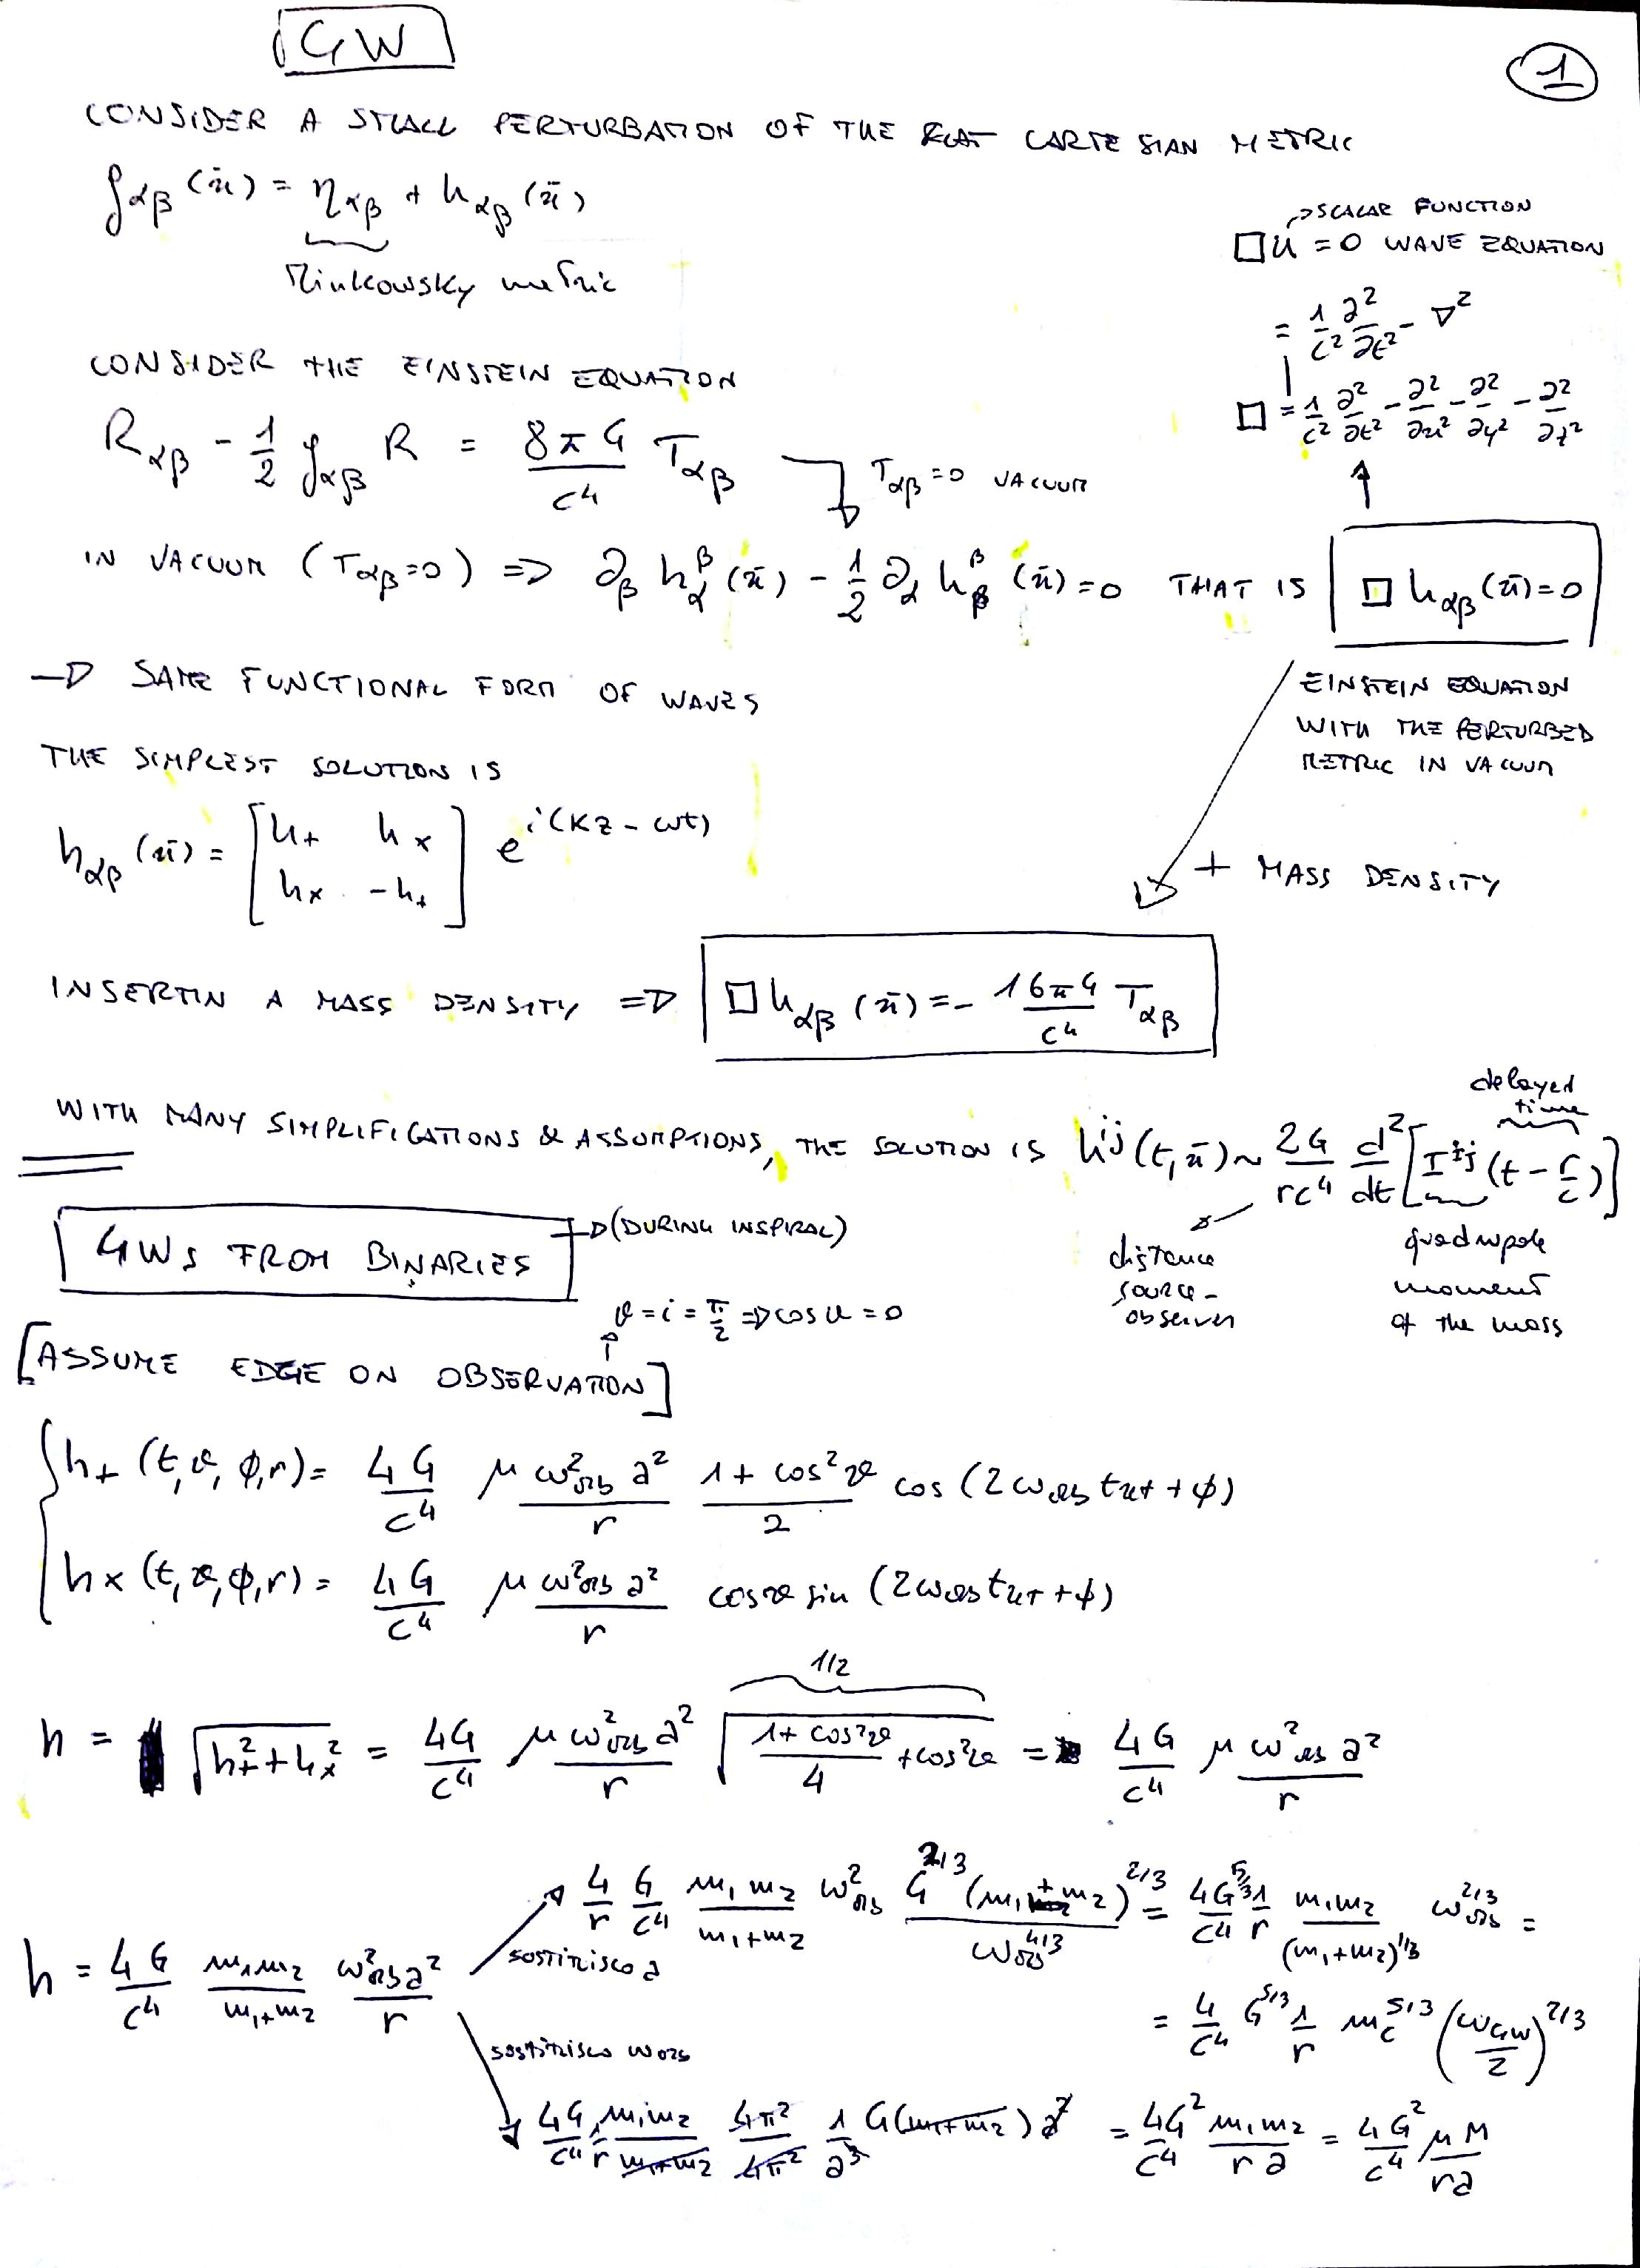 GW
1
CONSIDER A SMALL PERTURBATION OF THE FLAT CARTESIAN METRIC
g_αβ (x̄) = η_αβ + h_αβ (x̄)
Minkowsky metric
→ SCALAR FUNCTION
□u = 0 WAVE EQUATION
= 1/c² ∂²/∂t² - ∇²
□ = 1/c² ∂²/∂t² - ∂²/∂x² - ∂²/∂y² - ∂²/∂z²
CONSIDER THE EINSTEIN EQUATION
R_αβ - 1/2 g_αβ R = 8πG/c⁴ T_αβ
T_αβ = 0 VACUUM
IN VACUUM (T_αβ=0) => ∂_β h_α^β (x̄) - 1/2 ∂_α h_β^β (x̄) = 0 THAT IS □ h_αβ (x̄) = 0
→ SAME FUNCTIONAL FORM OF WAVES
EINSTEIN EQUATION
WITH THE PERTURBED
METRIC IN VACUUM
THE SIMPLEST SOLUTION IS
h_αβ (x̄) = [h₊ hₓ ; hₓ -h₊] e^{i(kz - ωt)}
+ MASS DENSITY
INSERTIN A MASS DENSITY => □ h_αβ (x̄) = - 16πG/c⁴ T_αβ
WITH MANY SIMPLIFICATIONS & ASSUMPTIONS, THE SOLUTION IS h^{ij} (t, x̄) ~ 2G/rc⁴ d²/dt [I^{ij} (t - r/c)]
delayed
time
distance
source-
observer
quadrupole
moment
of the mass
GWs FROM BINARIES → (DURING INSPIRAL)
ϑ = i = π/2 => cos ϑ = 0
[ASSUME EDGE ON OBSERVATION]
h₊ (t, ϑ, φ, r) = 4G/c⁴ μ ω²_orb a²/r (1 + cos²ϑ)/2 cos (2ω_orb t_ret + φ)
hₓ (t, ϑ, φ, r) = 4G/c⁴ μ ω²_orb a²/r cosϑ sin (2ω_orb t_ret + φ)
1/2
h = √(h₊² + hₓ²) = 4G/c⁴ μ ω²_orb a²/r √((1 + cos²ϑ)/4 + cos²ϑ) = 4G/c⁴ μ ω²_orb a²/r
4/r G/c⁴ m₁m₂/(m₁+m₂) ω²_orb G^{2/3} (m₁+m₂)^{2/3}/ω_orb^{4/3} = 4G^{5/3}/c⁴ 1/r m₁m₂/(m₁+m₂)^{1/3} ω_orb^{2/3} =
sostituisco a
h = 4G/c⁴ m₁m₂/(m₁+m₂) ω²_orb a²/r
= 4/c⁴ G^{5/3} 1/r m_c^{5/3} (ω_GW/2)^{2/3}
sostituisco ω_orb
4G/c⁴ 1/r m₁m₂/(m₁+m₂) 4π²/4π² 1/a³ G(m₁+m₂) a² = 4G²/c⁴ m₁m₂/ra = 4G²/c⁴ μM/ra